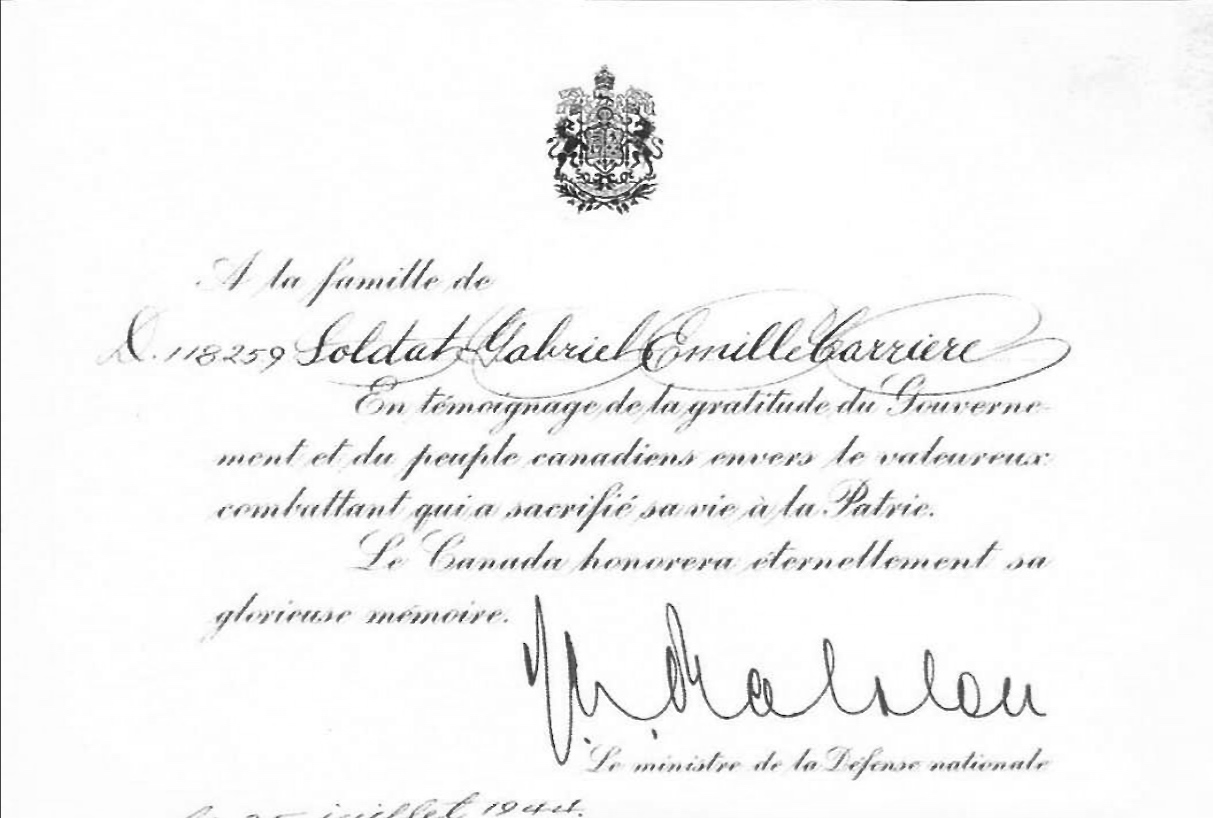 A la famille de
D. 118259 Soldat Gabriel Emille Carriere
En témoignage de la gratitude du Gouverne-
ment et du peuple canadiens envers le valeureux
combattant qui a sacrifié sa vie à la Patrie.
Le Canada honorera éternellement sa
glorieuse mémoire.
Ralston
Le ministre de la Défense nationale
le 25 juillet 1944.